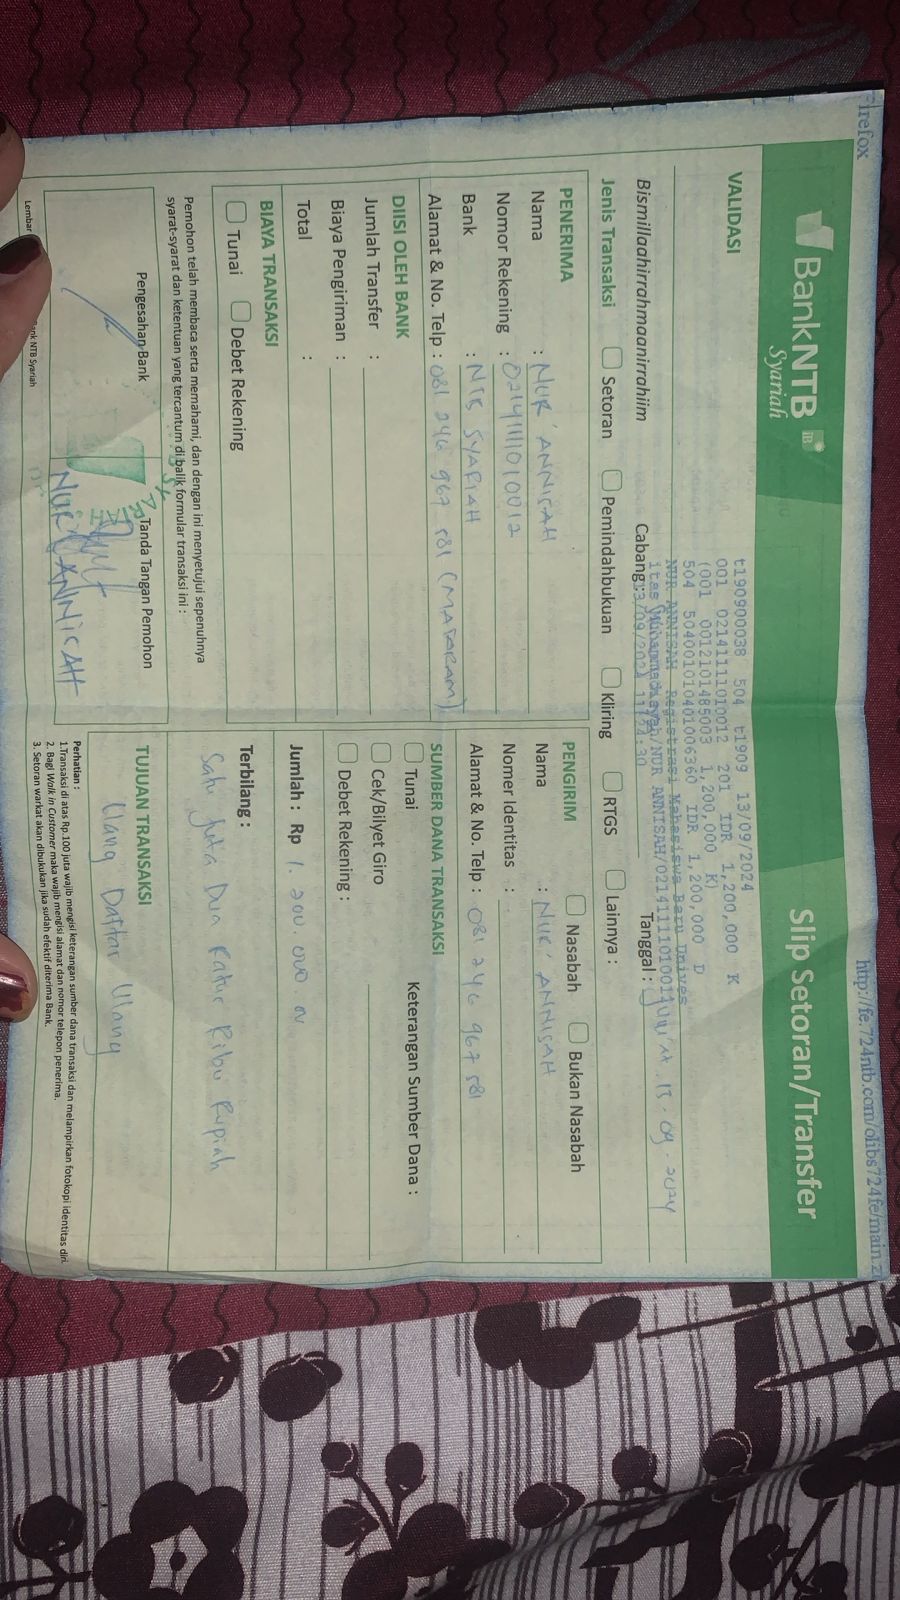 Firefox
http://fe.724ntb.com/olibs724fe/main.z
BankNTB
Syariah
Slip Setoran/Transfer
VALIDASI
t190900038 504 t1909 13/09/2024
001 0214111010012 201 IDR 1,200,000 K
(001 0012101485003 1,200,000 K)
504 504001010401006360 IDR 1,200,000 D
NUR ANNISAH Registrasi Mahasiswa Baru Univers
itas Muhammadiyah/NUR ANNISAH/021411110100
13/09/2024 11:24:30
Bismillaahirrahmaanirrahiim
Cabang :
Tanggal : Jum'at . 13 . 09 . 2024
Jenis Transaksi
Setoran
Pemindahbukuan
Kliring
RTGS
Lainnya :
PENERIMA
Nama : NUR' ANNISAH
Nomor Rekening : 0214111010012
Bank : NTB SYARIAH
Alamat & No. Telp : 081 246 967 581 (MATARAM)
PENGIRIM
Nasabah
Bukan Nasabah
Nama : NUR' ANNISAH
Nomer Identitas :
Alamat & No. Telp : 081 246 967 581
DIISI OLEH BANK
Jumlah Transfer :
Biaya Pengiriman :
Total :
SUMBER DANA TRANSAKSI
Tunai
Keterangan Sumber Dana :
Cek/Bilyet Giro
Debet Rekening :
BIAYA TRANSAKSI
Tunai
Debet Rekening
Jumlah : Rp 1. 200. 000
Terbilang :
Satu Juta Dua Ratus Ribu Rupiah
Pemohon telah membaca serta memahami, dan dengan ini menyetujui sepenuhnya
syarat-syarat dan ketentuan yang tercantum di balik formular transaksi ini :
Pengesahan Bank
Tanda Tangan Pemohon
NUR' ANNISAH
TUJUAN TRANSAKSI
Uang Daftar Ulang
Perhatian :
1.Transaksi di atas Rp.100 juta wajib mengisi keterangan sumber dana transaksi dan melampirkan fotokopi identitas diri.
2. Bagi Walk in Customer maka wajib mengisi alamat dan nomor telepon penerima.
3. Setoran warkat akan dibukukan jika sudah efektif diterima Bank.
Lembar
Bank NTB Syariah